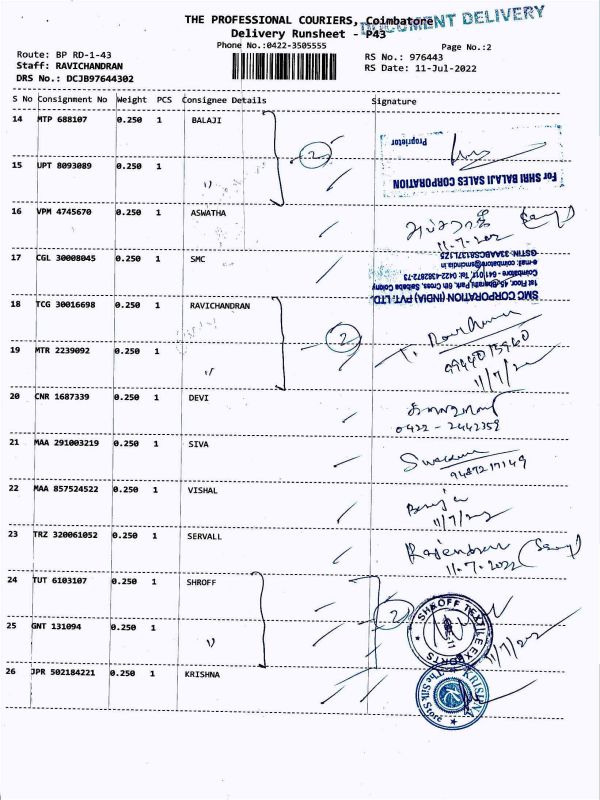 THE PROFESSIONAL COURIERS, Coimbatore
DOCUMENT DELIVERY
Delivery Runsheet - P43
Phone No.:0422-3505555
Page No.:2
Route: BP RD-1-43
RS No.: 976443
Staff: RAVICHANDRAN
RS Date: 11-Jul-2022
DRS No.: DCJB97644302
S No Consignment No Weight PCS Consignee Details Signature
14 MTP 688107 0.250 1 BALAJI
2
Proprietor
For SHRI BALAJI SALES CORPORATION
15 UPT 8093089 0.250 1 "
16 VPM 4745670 0.250 1 ASWATHA
11.7.2022
17 CGL 30008045 0.250 1 SMC
SMC CORPORATION (INDIA) PVT. LTD
1st Floor, 45, Bharathi Park, 6th Cross, Saibaba Colony
Coimbatore - 641 011, Tel: 0422-4382872-73
e-mail: coimbatore@smcindia.in
GSTIN: 33AABCS8137L1Z5
18 TCG 30016698 0.250 1 RAVICHANDRAN
2
9944015960
11/7/2022
19 MTR 2239092 0.250 1 "
20 CNR 1687339 0.250 1 DEVI
0422 - 2442359
21 MAA 291003219 0.250 1 SIVA
9487217149
22 MAA 857524522 0.250 1 VISHAL
11/7/2022
23 TRZ 320061052 0.250 1 SERVALL
Rajendran
11.7.2022
24 TUT 6103107 0.250 1 SHROFF
2
SHROFF TEXTILE EXPORTS
11/7/2022
25 GNT 131094 0.250 1 "
26 JPR 502184221 0.250 1 KRISHNA
KRISHNA
The Silk Store